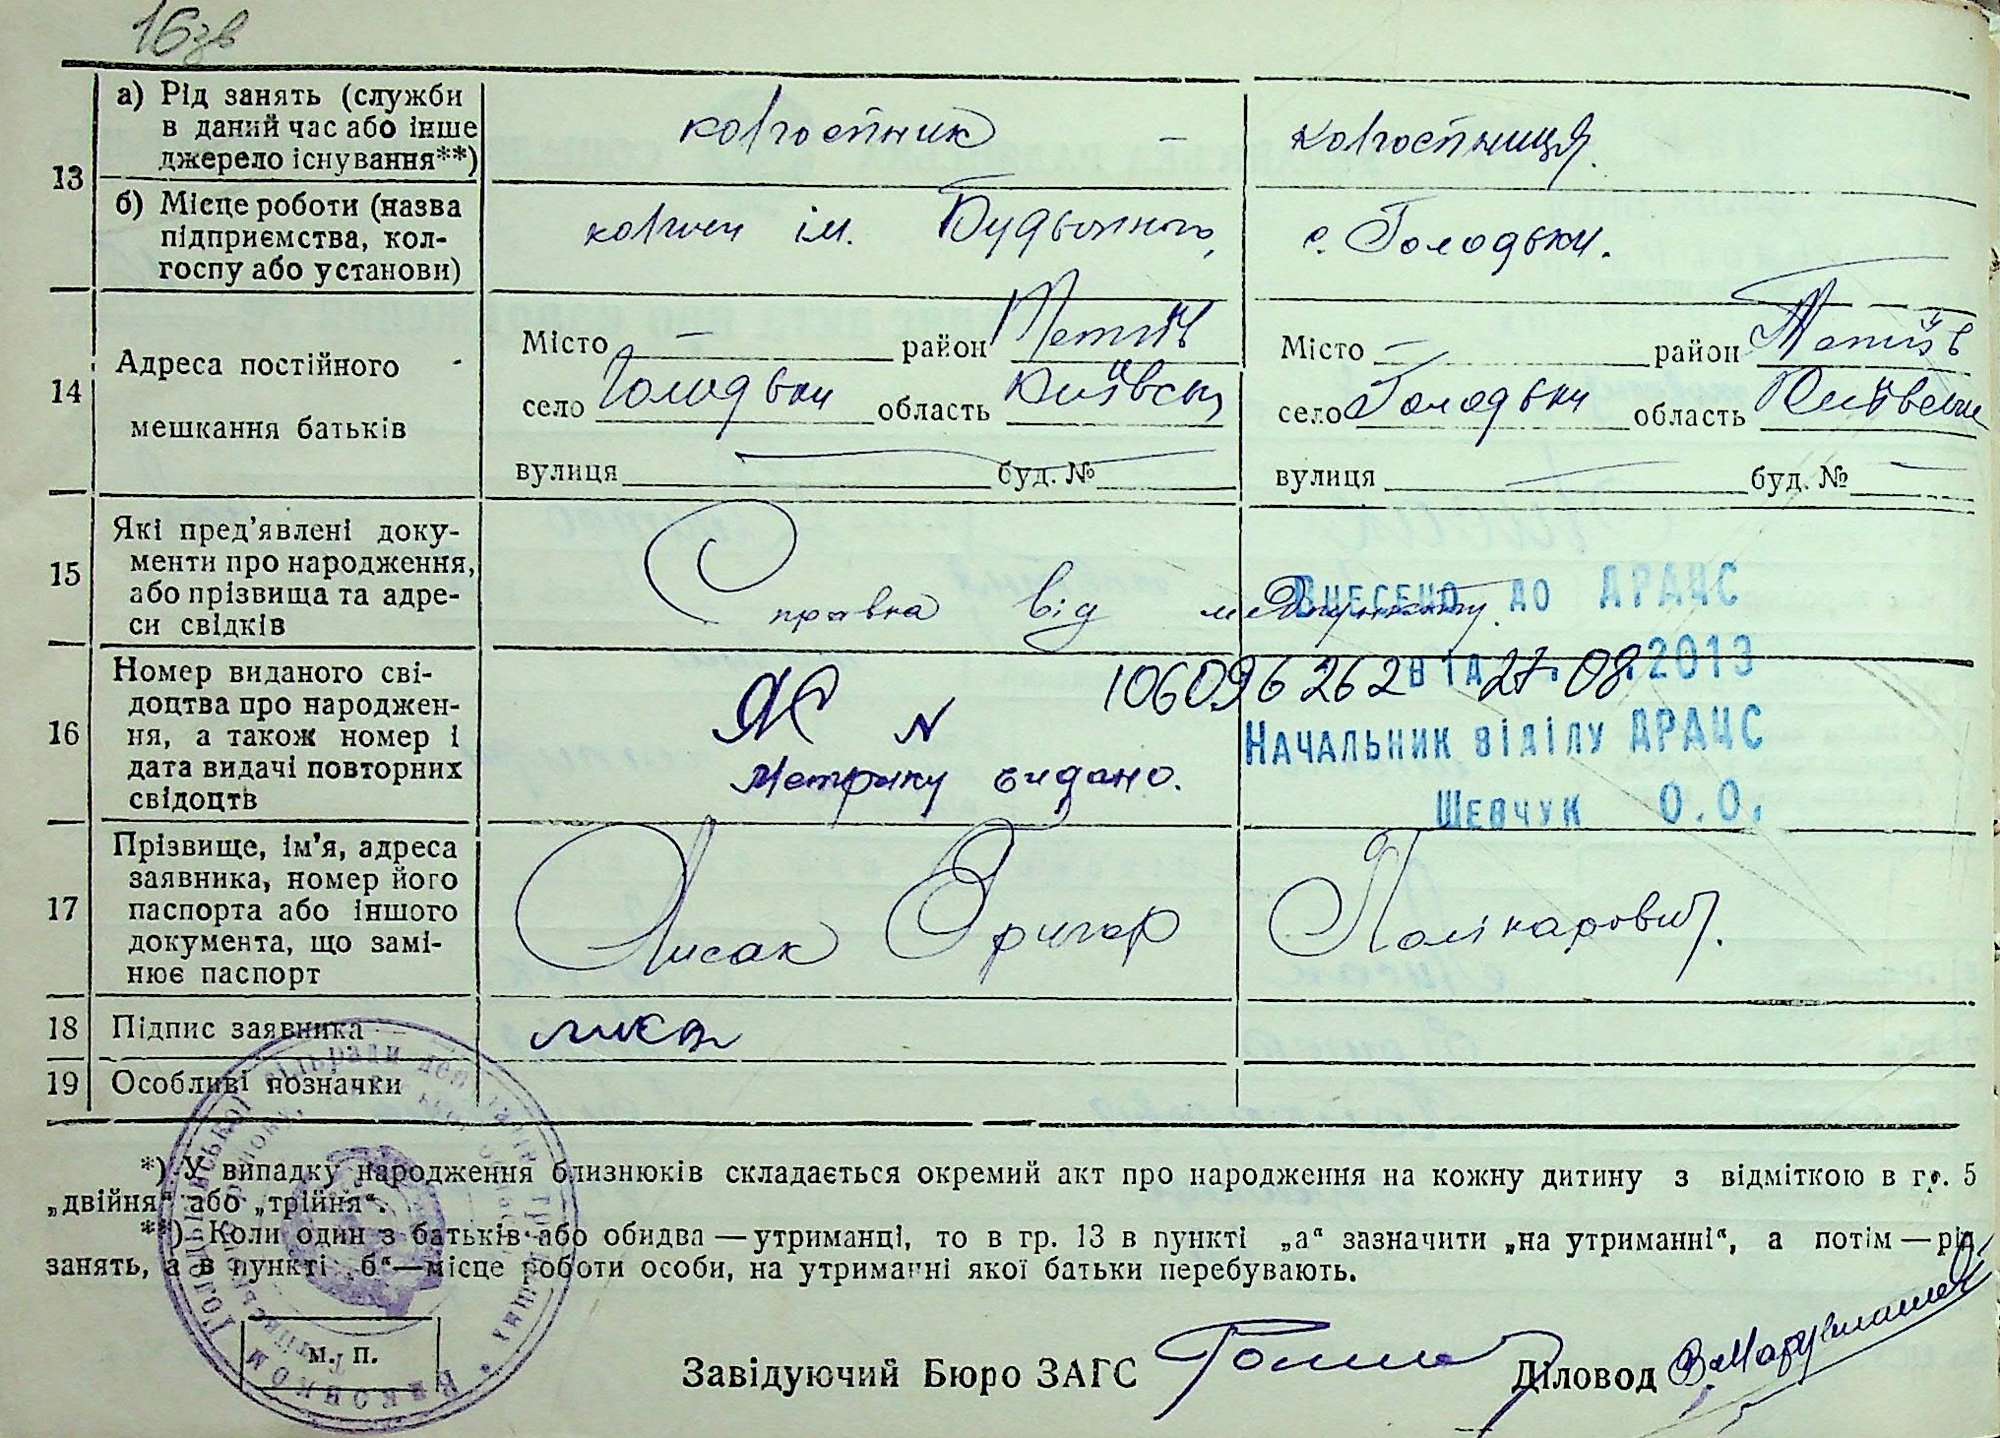 16зв
13
а) Рід занять (служби
в даний час або інше
джерело існування**)
колгоспник –
колгоспниця.
б) Місце роботи (назва
підприємства, кол-
госпу або установи)
колгосп ім. Будьонного,
с. Голодьки.
14
Адреса постійного
мешкання батьків
Місто — район Тетіїв
село Голодьки область Київськ
вулиця — буд. №
Місто — район Тетіїв
село Голодьки область Київськ
вулиця — буд. № —
15
Які пред'явлені доку-
менти про народження,
або прізвища та адре-
си свідків
Справка від медпункту.
ВНЕСЕНО ДО ДРАЦС
16
Номер виданого сві-
доцтва про народжен-
ня, а також номер і
дата видачі повторних
свідоцтв
ЯС N 106096262
Метрику видано.
ВІД 27.08.2013
НАЧАЛЬНИК ВІДІЛУ ДРАЦС
ШЕВЧУК О.О.
17
Прізвище, ім'я, адреса
заявника, номер його
паспорта або іншого
документа, що замі-
нює паспорт
Лисак Григор Полікарович.
18
Підпис заявника
19
Особливі позначки
*) У випадку народження близнюків складається окремий акт про народження на кожну дитину з відміткою в гр. 5
„двійня“ або „трійня“.
**) Коли один з батьків або обидва — утриманці, то в гр. 13 в пункті „а“ зазначити „на утриманні“, а потім — рід
занять, а в пункті „б“ — місце роботи особи, на утриманні якої батьки перебувають.
м. п.
Завідуючий Бюро ЗАГС
Діловод